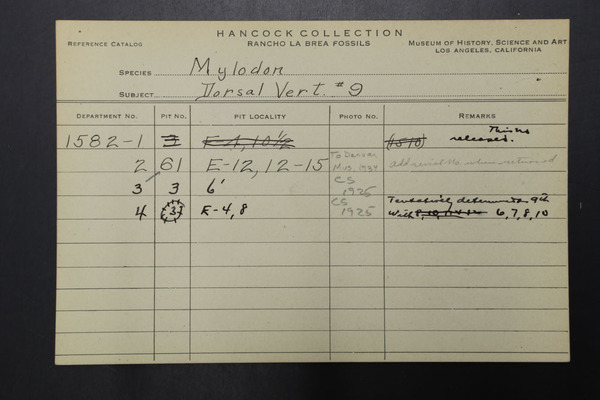 HANCOCK COLLECTION
REFERENCE CATALOG RANCHO LA BREA FOSSILS MUSEUM OF HISTORY, SCIENCE AND ART
LOS ANGELES, CALIFORNIA
SPECIES Mylodon
SUBJECT Dorsal Vert. #9
DEPARTMENT NO. PIT NO. PIT LOCALITY PHOTO NO. REMARKS
1582-1 3 E-4, 10½ (1510) This no
released.
2 61 E-12, 12-15 To Denver Add serial No. when returned
Mus. 1934
3 3 6' CS
1925
4 (3) E-4, 8 CS Tentatively determined 9th
1925 with 6, 7, 8, 10